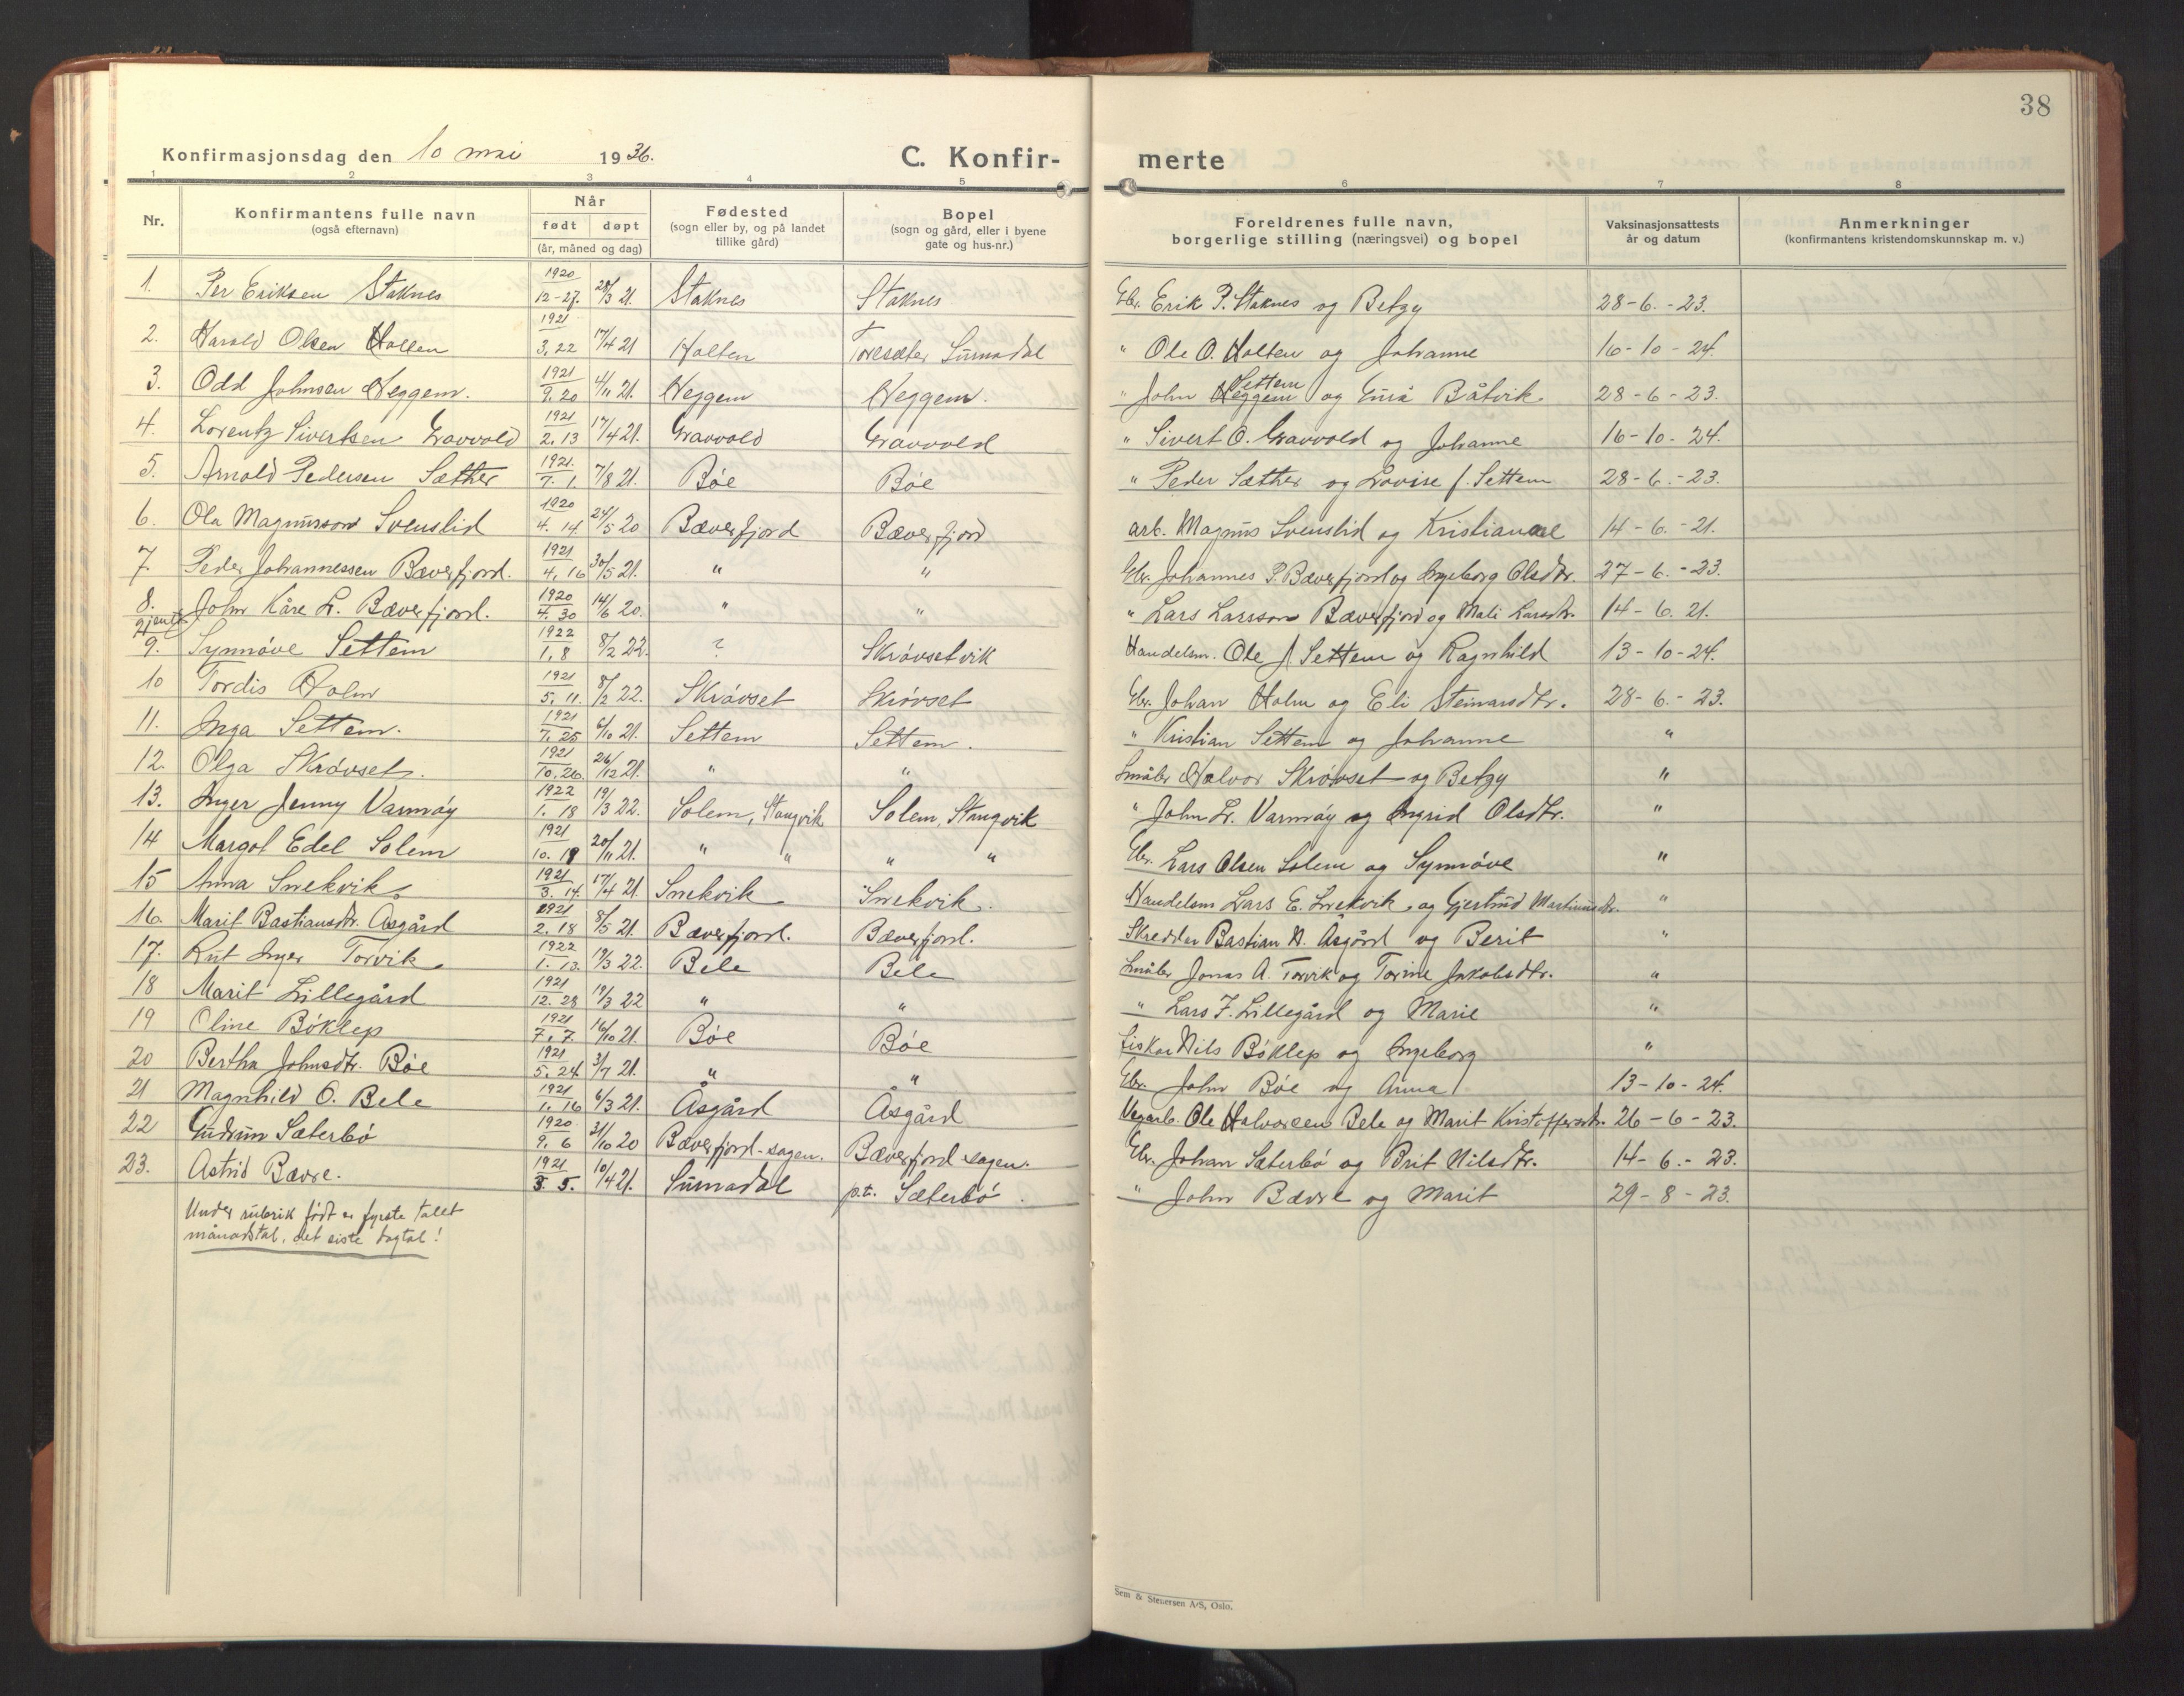 38
Konfirmasjonsdag den 10 mai 1936. C. Konfir- merte
1 2 3 4 5 6 7 8
Nr. Konfirmantens fulle navn (også efternavn) Når født døpt (år, måned og dag) Fødested (sogn eller by, og på landet tillike gård) Bopel (sogn og gård, eller i byene gate og hus-nr.) Foreldrenes fulle navn, borgerlige stilling (næringsvei) og bopel Vaksinasjonsattests år og datum Anmerkninger (konfirmantens kristendomskunnskap m. v.)
1. Per Eriksen Staknes 1920 12-27. 28/3 21. Staknes Staknes Gbr. Erik P. Staknes og Betzy 28-6.-23.
2. Harald Olsen Holten 1921 3.22 17/4 21 Holten Toresæter Surnadal " Ole O. Holten og Johanne 16-10-24.
3. Odd Johnsen Heggem. 1921 9.20 4/11 21. Heggem Heggem. " John Heggem Settem og Guri Båtvik 28-6-23.
4. Lorentz Sivertsen Gravvold 1921 2.13 17/4 21. Gravvold Gravvold " Sivert O. Gravvold og Johanne 16-10-24.
5. Arnold Pedersen Sæther 1921. 7.1. 7/8 21. Bøe Bøe " Peder Sæther og Lovise f. Settem 28-6.-23.
6. Ola Magnusson Svenslid 1920 4.14. 24/5 20 Bæverfjord Bæverfjord arb. Magnus Svenslid og Kristianne 14-6.-21.
7. Peder Johannessen Bæverfjord. 1921 4.16 30/5 21. " " Gbr. Johannes P. Bæverfjord og Ingeborg Olsdtr. 27-6.-23.
8. John Kåre L. Bæverfjord. 1920 4.30 14/6 20. " " " Lars Larsson Bæverfjord og Mali Larsdtr. 14-6.21.
gjenter
9. Synnøve Settem 1922 1.8 8/2 22. ? Skrøvsetvik Handelsm. Ole J. Settem og Ragnhild 13-10-24.
10 Tordis Holm 1921 5.11. 8/2 22. Skrøvset Skrøvset Gbr. Johan Holm og Eli Steinarsdtr. 28-6.-23.
11. Inga Settem. 1921 7.25 6/10 21. Settem Settem. " Kristian Settem og Johanne "
12. Olga Skrøvset. 1921 10.26. 26/12 21. " " Småbr Halvor Skrøvset og Betzy "
13. Inger Jenny Varmøy 1922 1.18 19/3 22. Solem, Stangvik Solem, Stangvik " John Lr. Varmøy og Ingrid Olsdtr. "
14 Margot Edel Solem 1921 10.19 20/11 21. " " " " Gbr. Lars Olsen Solem og Synnøve "
15 Anna Snekvik 1921 3.14. 17/4 21. Snekvik Snekvik. Handelsm Lars E. Snekvik og Gjertrud Martinusdtr. "
16. Marit Bastiansdtr. Åsgård 1921 2.18 8/5 21. Bæverfjord. Bæverfjord. Skredder Bastian N. Åsgård og Berit "
17. Rut Inger Torvik 1922 1.13. 19/3 22. Bele Bele Småbr Jonas A. Torvik og Torine Jakobsdtr. "
18 Marit Lillegård 1921 12.28 19/3 22 " " " Lars F. Lillegård og Marie "
19 Oline Bøklep 1921 7.7. 16/10 21. Bøe Bøe Fisker Nils Bøklep og Ingeborg "
20 Bertha Johnsdtr. Bøe 1921 5.24. 3/7 21. " " Gbr. John Bøe og Anna 13-10-24.
21 Magnhild O. Bele 1921 1.16 6/3 21. Åsgård Åsgård Vegarb. Ole Halvorsen Bele og Marit Kristoffersdtr. 26-6-23.
22 Gudrun Sæterbø 1920. 9.6 31/10 20 Bæverfjord-sagen. Bæverfjord sagen. Gbr. Johan Sæterbø og Brit Nilsdtr. 14-6.-23.
23. Astrid Bævre. 1921 3.5. 10/4 21. Surnadal p.t. Sæterbø. " John Bævre og Marit 29-8-23.
Under rubrik født er fyrste tallet
månadstal, det siste dagtal!
Sem & Stenersen A/S, Oslo.